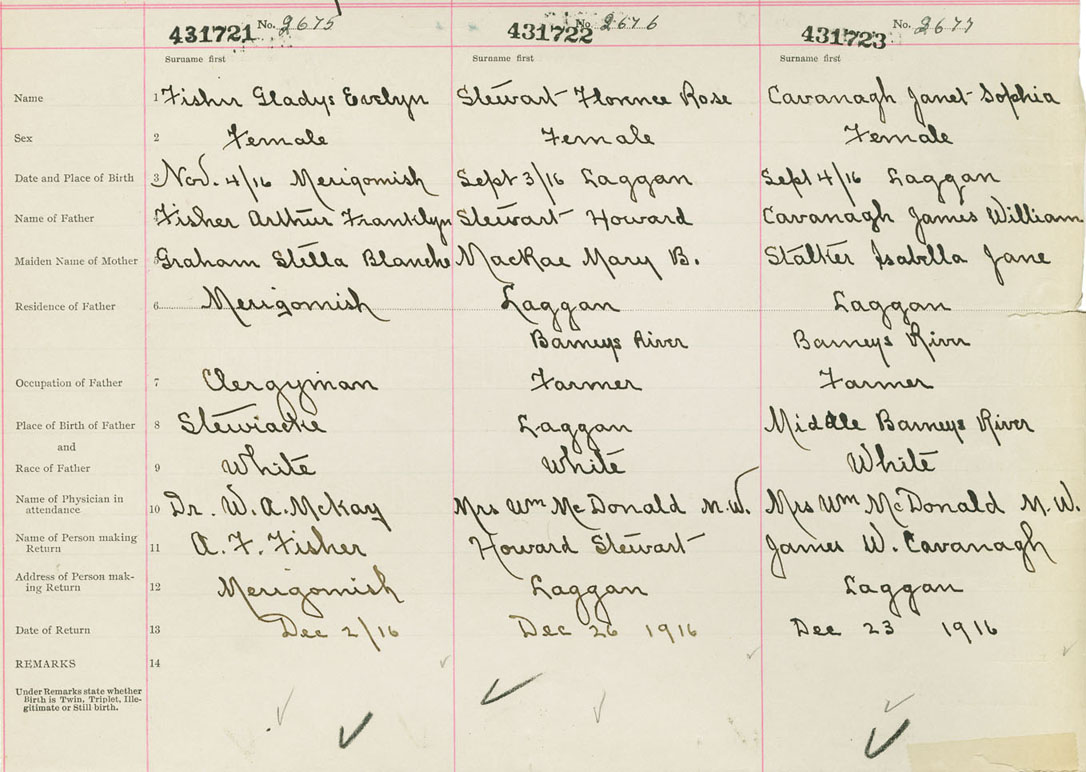 431721 No. 2675 431722 No 2676 431723 No. 2677
Surname first Surname first Surname first
Name 1 Fisher Gladys Evelyn Stewart Florence Rose Cavanagh Janet Sophia
Sex 2 Female Female Female
Date and Place of Birth 3 Nov. 4/16 Merigomish Sept 3/16 Laggan Sept 4/16 Laggan
Name of Father 4 Fisher Arthur Franklyn Stewart Howard Cavanagh James William
Maiden Name of Mother 5 Graham Stella Blanche MacRae Mary B. Stalker Isabella Jane
Residence of Father 6 Merigomish Laggan Laggan
Barneys River Barneys River
Occupation of Father 7 Clergyman Farmer Farmer
Place of Birth of Father 8 Stewiacke Laggan Middle Barneys River
and
Race of Father 9 White White White
Name of Physician in
attendance 10 Dr. W. A. McKay Mrs Wm McDonald M.W. Mrs Wm McDonald M.W.
Name of Person making
Return 11 A. F. Fisher Howard Stewart James W. Cavanagh
Address of Person mak-
ing Return 12 Merigomish Laggan Laggan
Date of Return 13 Dec 2/16 Dec 26 1916 Dec 23 1916
REMARKS 14
Under Remarks state whether
Birth is Twin, Triplet, Ille-
gitimate or Still birth.